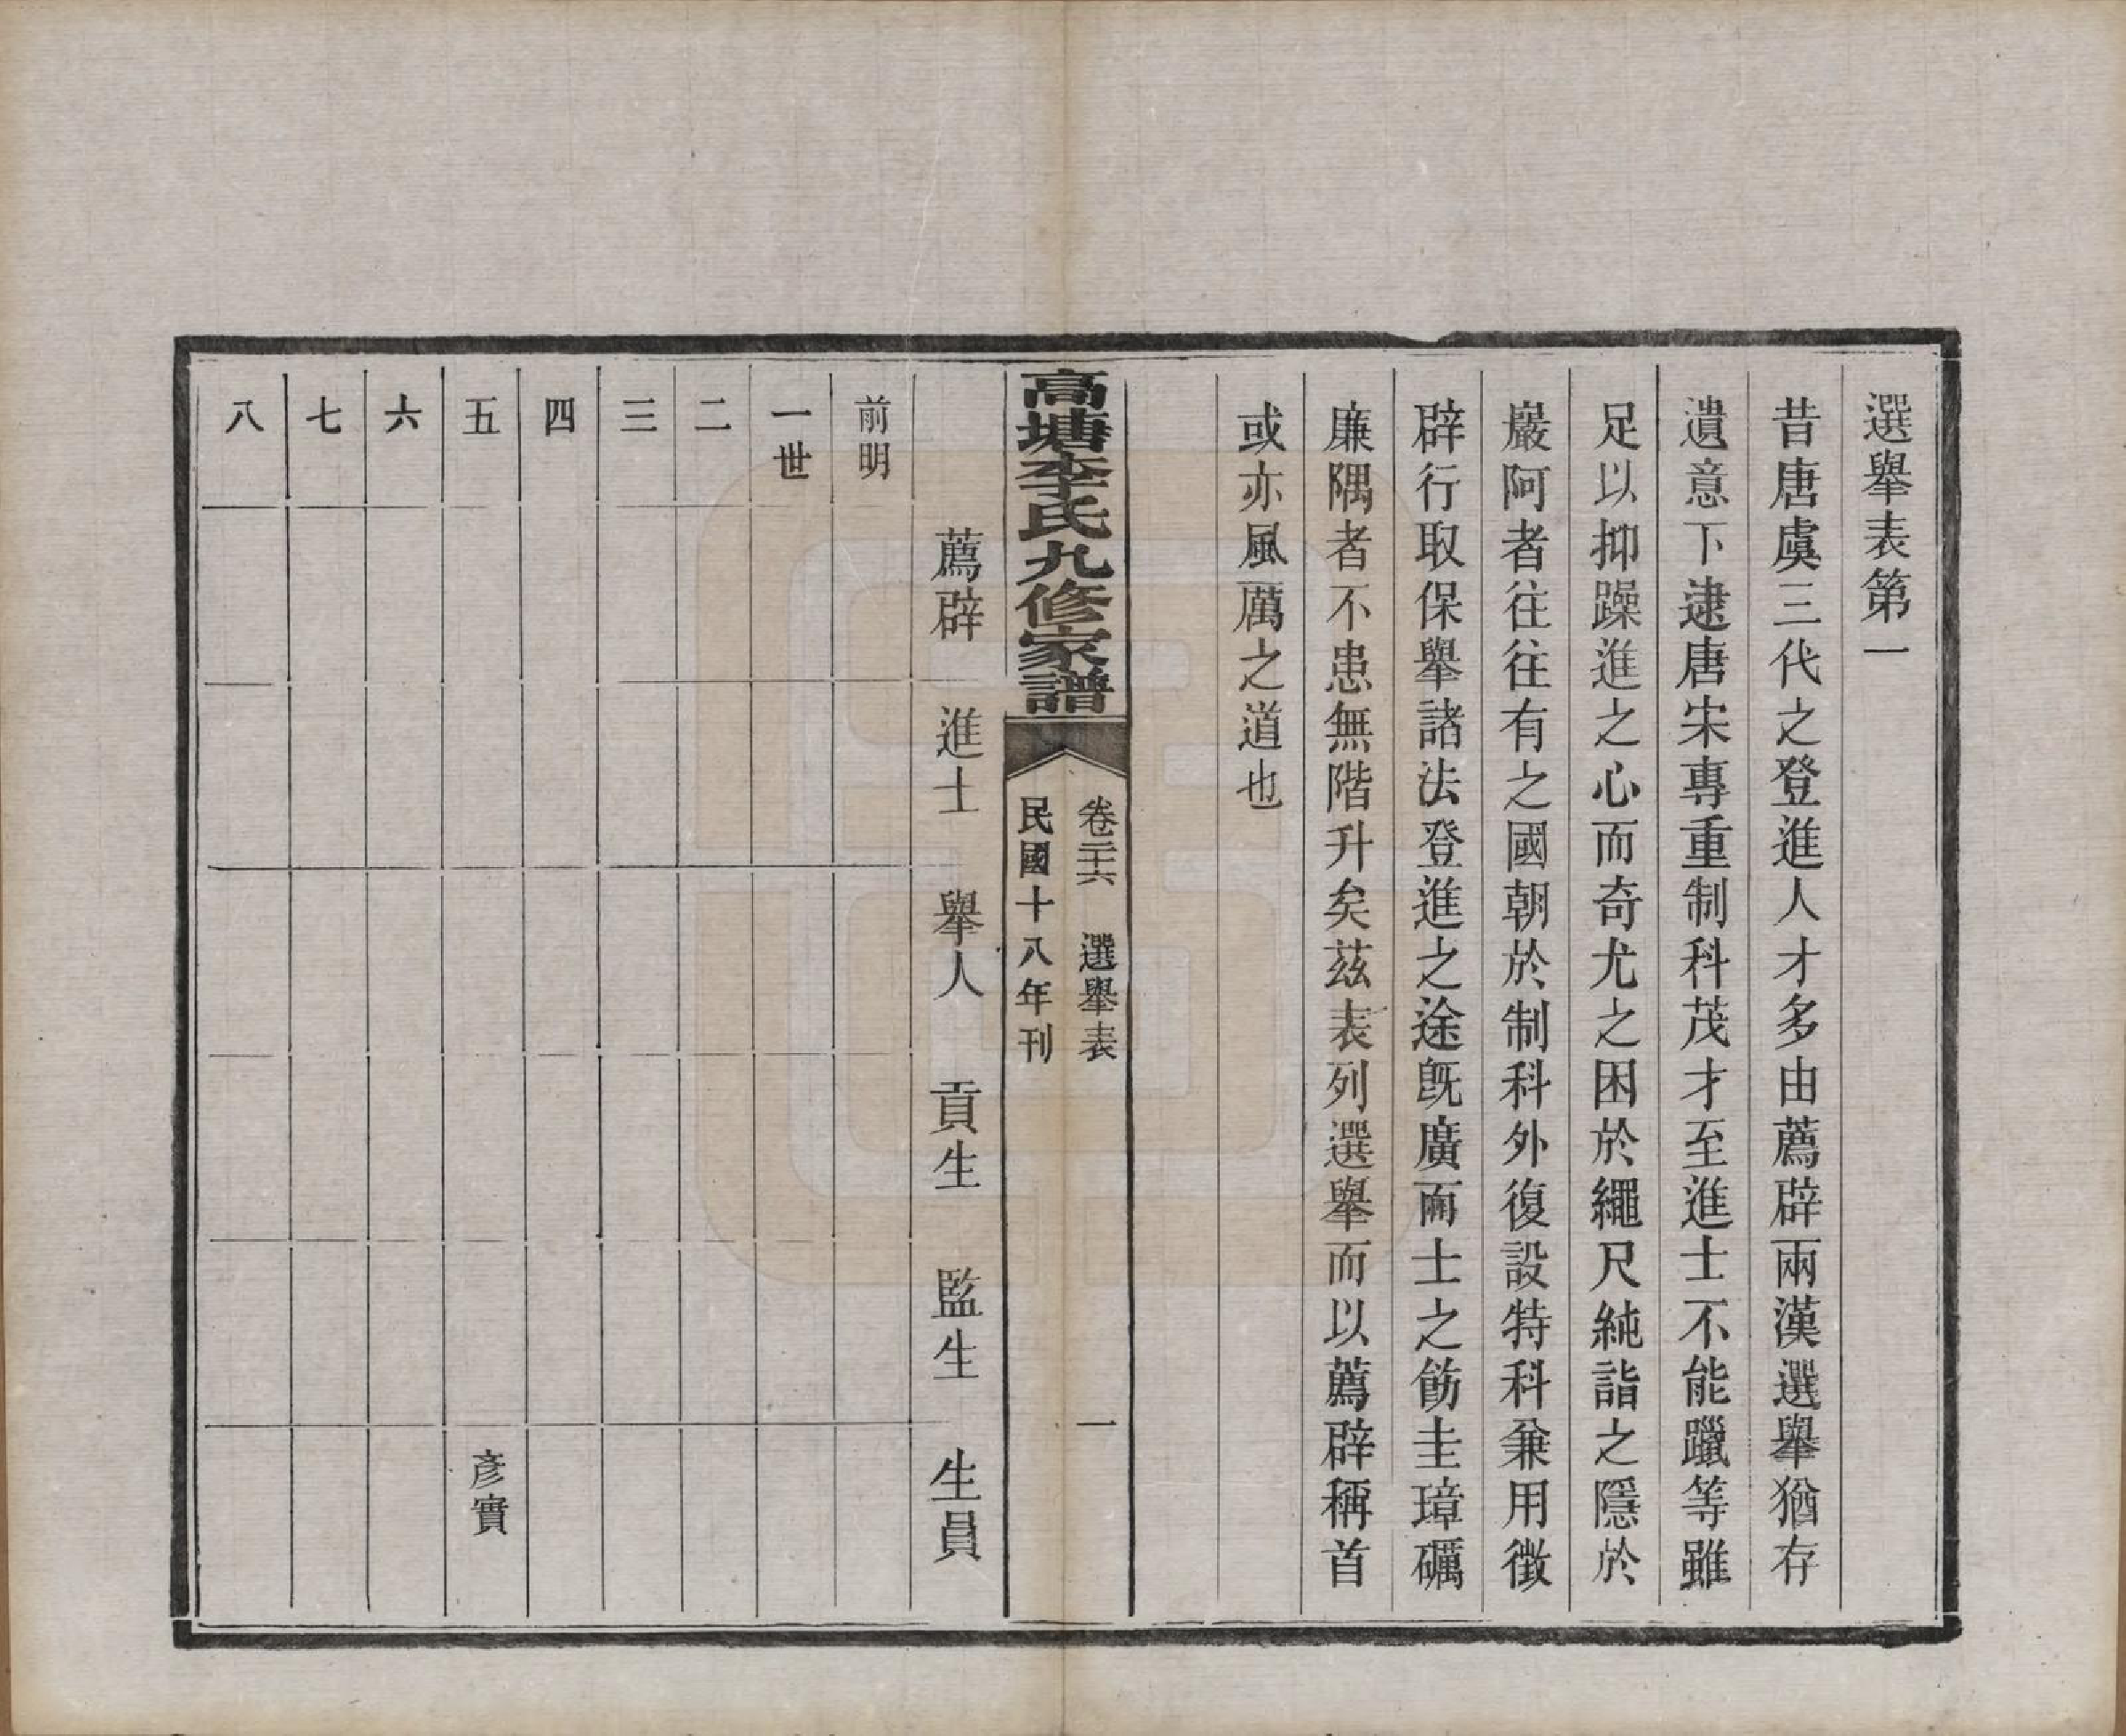 選舉表第一
昔唐虞三代之登進人才多由薦辟兩漢選舉猶存
遺意下逮唐宋專重制科茂才至進士不能躐等雖
足以抑躁進之心而奇尤之困於繩尺純詣之隱於
巖阿者往往有之國朝於制科外復設特科兼用徵
辟行取保舉諸法登進之途既廣而士之飭圭璋礪
廉隅者不患無階升矣茲表列選舉而以薦辟稱首
或亦風厲之道也
高塘李氏九修家譜
卷二十六 選舉表 一
民國十八年刊
薦辟 進士 舉人 貢生 監生 生員
前明
一世
二
三
四
五 彥實
六
七
八